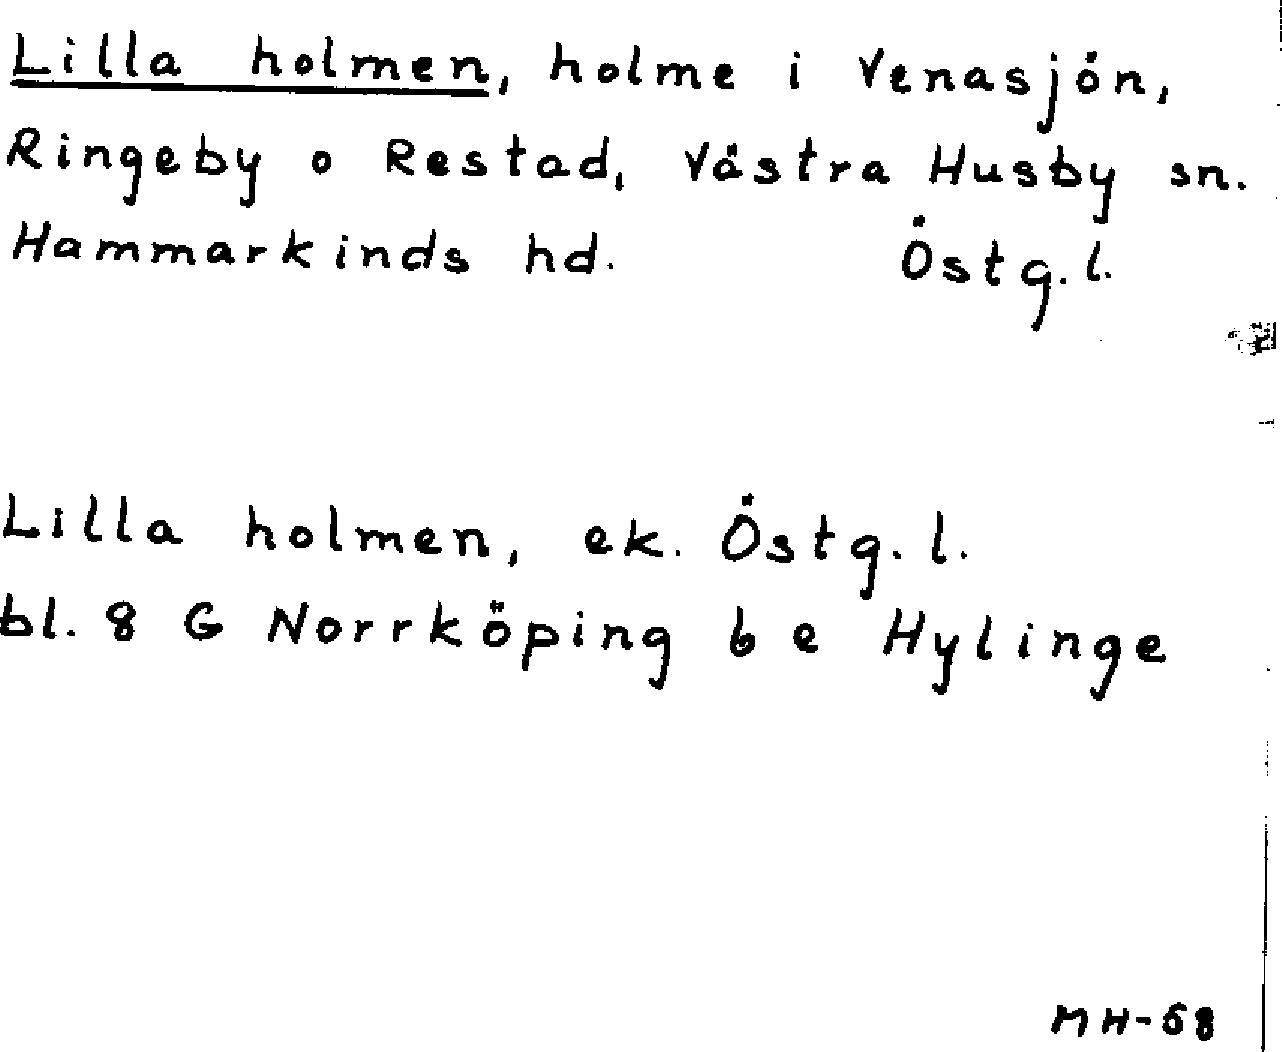 Lilla holmen, holme i Venasjön,
Ringeby o Restad, Västra Husby sn.
Hammarkinds hd. Östg. l.
Lilla holmen, ek. Östg. l.
bl. 8 G Norrköping 6 e Hylinge
MH-68